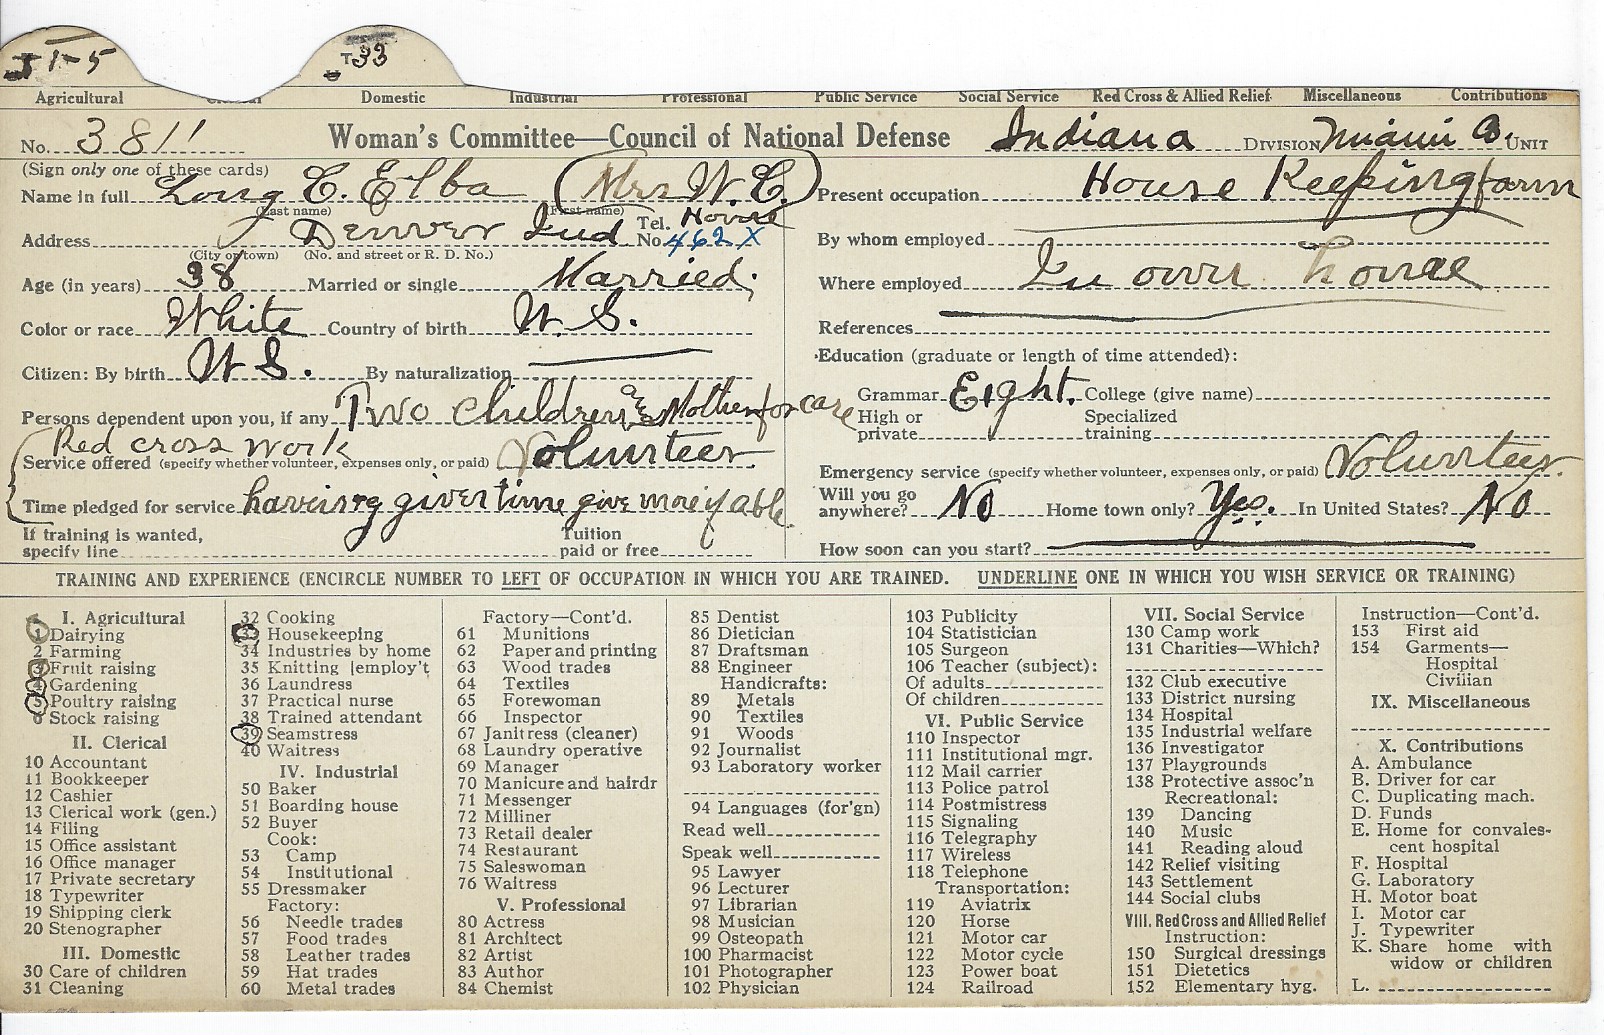 1-5 T33
Agricultural Domestic Industrial Professional Public Service Social Service Red Cross & Allied Relief Miscellaneous Contributions
No. 3811 Woman's Committee—Council of National Defense Indiana DIVISION Miami Co. UNIT
(Sign only one of these cards)
Name in full Long C. Elba (Mrs W. C.)
(Last name) (First name)
Address Denver Ind Tel. No. House 462 X
(City or town) (No. and street or R. D. No.)
Age (in years) 38 Married or single Married
Color or race White Country of birth U. S.
Citizen: By birth U S. By naturalization
Persons dependent upon you, if any Two children & Mother for care
Red cross work
Service offered (specify whether volunteer, expenses only, or paid) Volunteer
Time pledged for service having given time give more if able.
If training is wanted, specify line Tuition paid or free
Present occupation House Keeping farm
By whom employed
Where employed In own house
References
Education (graduate or length of time attended):
Grammar Eight. College (give name)
High or private Specialized training
Emergency service (specify whether volunteer, expenses only, or paid) Volunteer
Will you go anywhere? No Home town only? Yes. In United States? No
How soon can you start?
TRAINING AND EXPERIENCE (ENCIRCLE NUMBER TO LEFT OF OCCUPATION IN WHICH YOU ARE TRAINED. UNDERLINE ONE IN WHICH YOU WISH SERVICE OR TRAINING)
I. Agricultural
1 Dairying
2 Farming
3 Fruit raising
4 Gardening
5 Poultry raising
6 Stock raising
II. Clerical
10 Accountant
11 Bookkeeper
12 Cashier
13 Clerical work (gen.)
14 Filing
15 Office assistant
16 Office manager
17 Private secretary
18 Typewriter
19 Shipping clerk
20 Stenographer
III. Domestic
30 Care of children
31 Cleaning
32 Cooking
33 Housekeeping
34 Industries by home
35 Knitting [employ't
36 Laundress
37 Practical nurse
38 Trained attendant
39 Seamstress
40 Waitress
IV. Industrial
50 Baker
51 Boarding house
52 Buyer
Cook:
53 Camp
54 Institutional
55 Dressmaker
Factory:
56 Needle trades
57 Food trades
58 Leather trades
59 Hat trades
60 Metal trades
Factory—Cont'd.
61 Munitions
62 Paper and printing
63 Wood trades
64 Textiles
65 Forewoman
66 Inspector
67 Janitress (cleaner)
68 Laundry operative
69 Manager
70 Manicure and hairdr
71 Messenger
72 Milliner
73 Retail dealer
74 Restaurant
75 Saleswoman
76 Waitress
V. Professional
80 Actress
81 Architect
82 Artist
83 Author
84 Chemist
85 Dentist
86 Dietician
87 Draftsman
88 Engineer
Handicrafts:
89 Metals
90 Textiles
91 Woods
92 Journalist
93 Laboratory worker
94 Languages (for'gn)
Read well
Speak well
95 Lawyer
96 Lecturer
97 Librarian
98 Musician
99 Osteopath
100 Pharmacist
101 Photographer
102 Physician
103 Publicity
104 Statistician
105 Surgeon
106 Teacher (subject):
Of adults
Of children
VI. Public Service
110 Inspector
111 Institutional mgr.
112 Mail carrier
113 Police patrol
114 Postmistress
115 Signaling
116 Telegraphy
117 Wireless
118 Telephone
Transportation:
119 Aviatrix
120 Horse
121 Motor car
122 Motor cycle
123 Power boat
124 Railroad
VII. Social Service
130 Camp work
131 Charities—Which?
132 Club executive
133 District nursing
134 Hospital
135 Industrial welfare
136 Investigator
137 Playgrounds
138 Protective assoc'n
Recreational:
139 Dancing
140 Music
141 Reading aloud
142 Relief visiting
143 Settlement
144 Social clubs
VIII. Red Cross and Allied Relief
Instruction:
150 Surgical dressings
151 Dietetics
152 Elementary hyg.
Instruction—Cont'd.
153 First aid
154 Garments—
Hospital
Civilian
IX. Miscellaneous
X. Contributions
A. Ambulance
B. Driver for car
C. Duplicating mach.
D. Funds
E. Home for convales-
cent hospital
F. Hospital
G. Laboratory
H. Motor boat
I. Motor car
J. Typewriter
K. Share home with
widow or children
L.